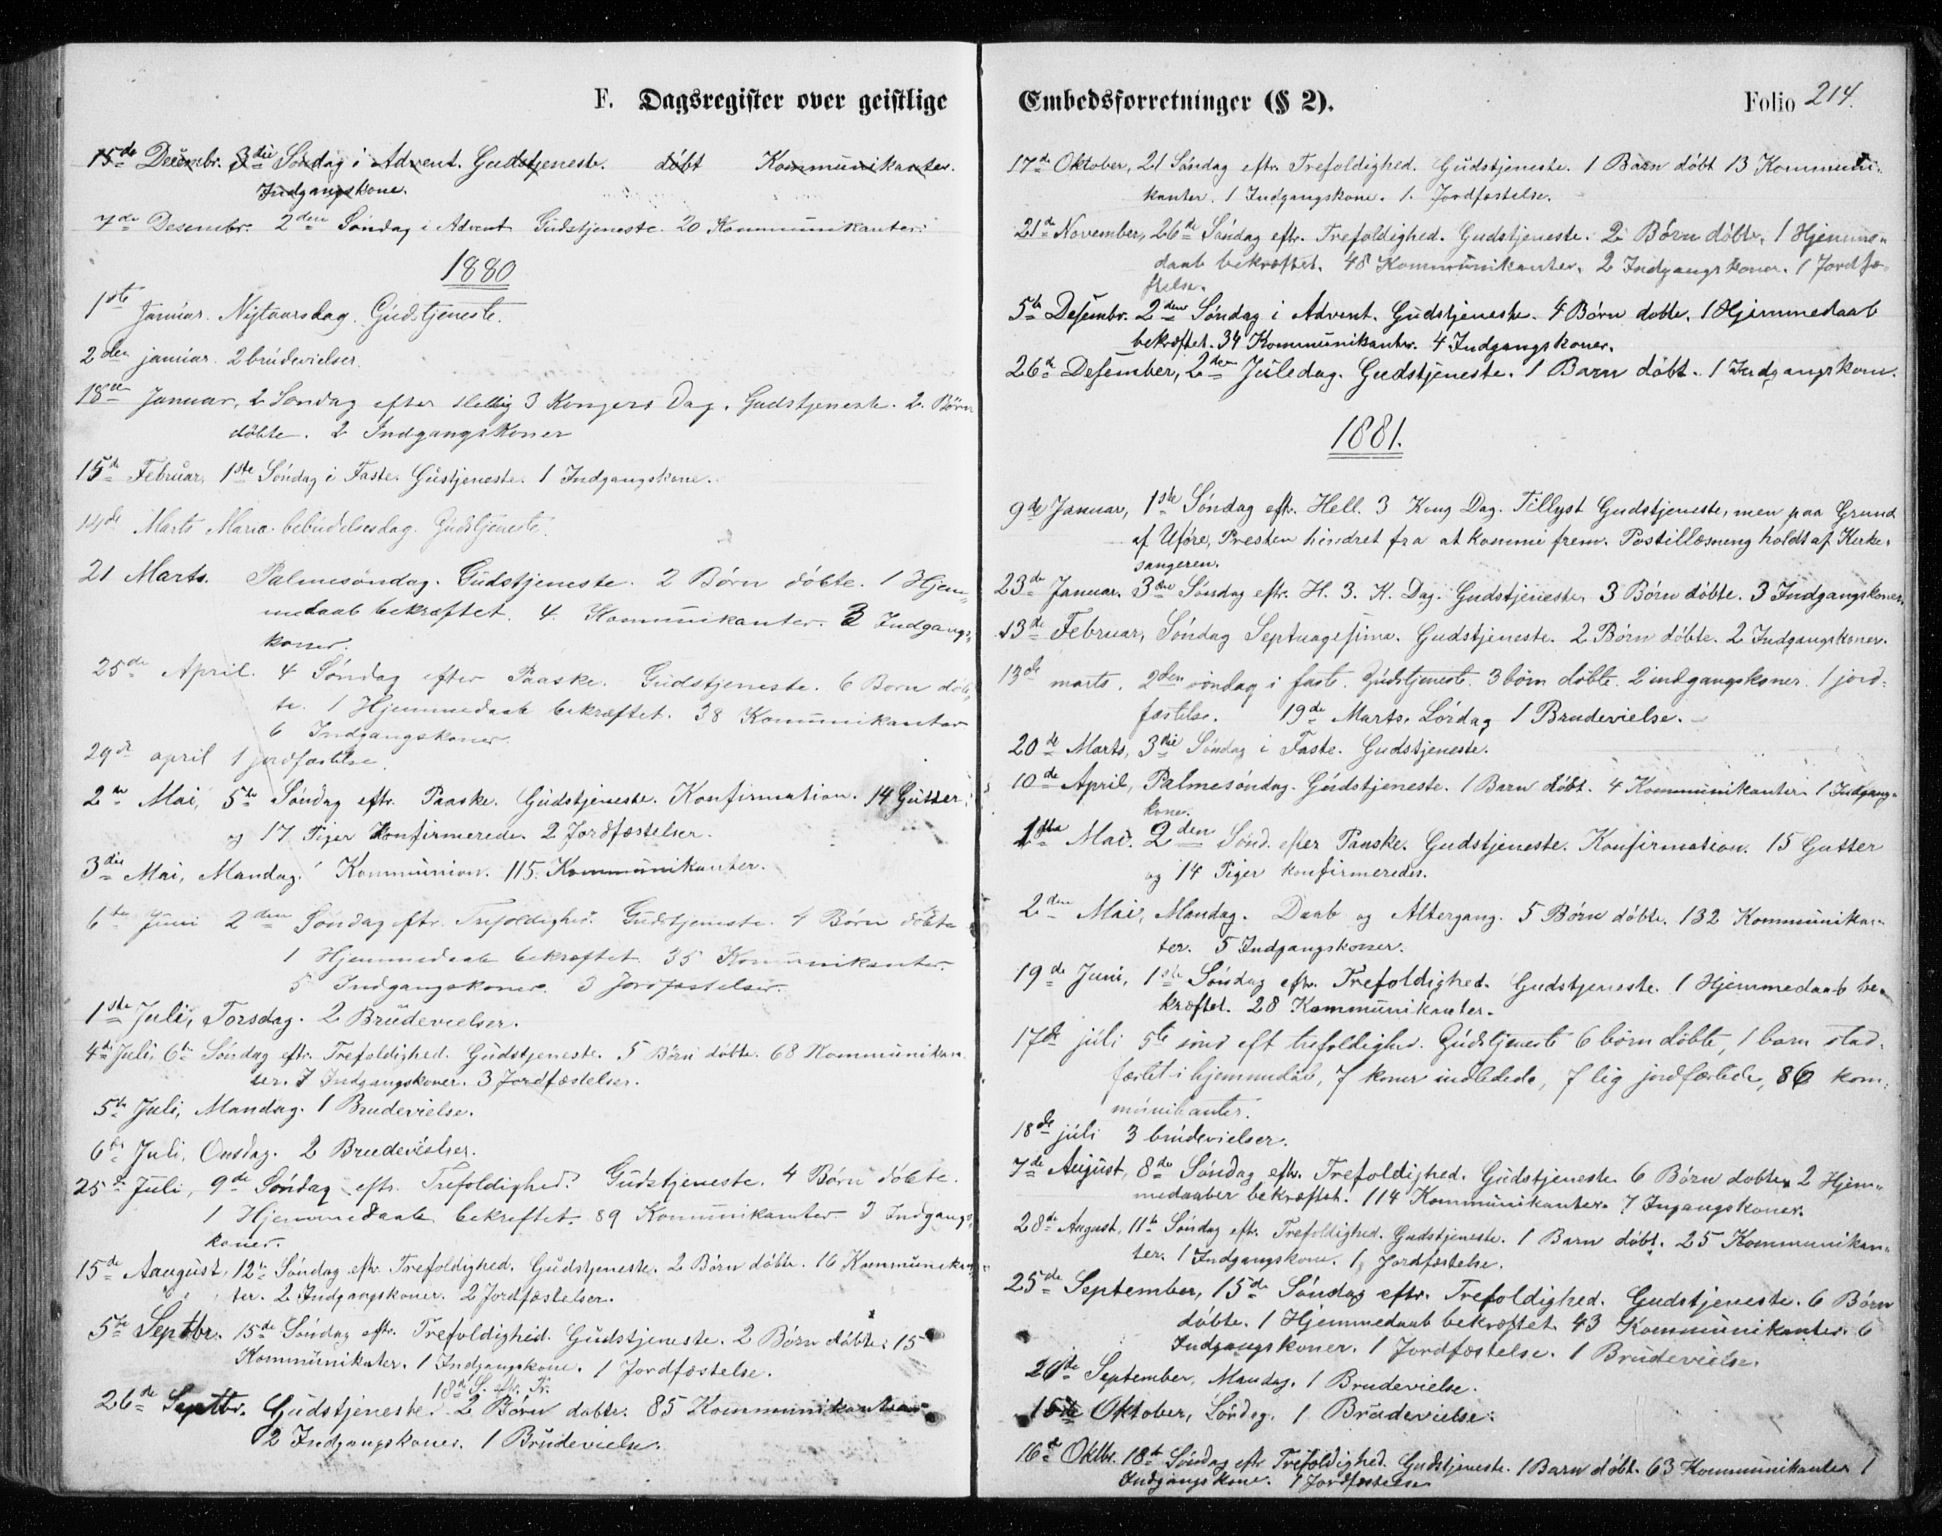 F. Dagsregister over geistlige
15de Decembr. 3die Søndag i Advent. Gudstjeneste. døbt Kommunikanter.
Indgangskone.
7de Desembr. 2den Søndag i Advent Gudstjeneste. 20 Kommunikanter.
1880
1ste Januar. Nytaarsdag. Gudstjeneste.
2den januar. 2 brudevielser.
18de Januar, 2 Søndag efter Hellig 3 Kongers Dag. Gudstjeneste. 2 Børn
døbte. 2 Indgangskoner
15de Februar, 1ste Søndag i Faste. Gustjeneste. 1 Indgangskone.
14de Marts Maria bebudelsesdag. Gudstjeneste.
21 Marts. Palmesøndag. Gudstjeneste. 2 Børn døbte. 1 Hjem-
medaab bekræftet. 4 Kommunikanter. 3 Indgangs-
koner.
25de April. 4 Søndag efter Paaske. Gudstjeneste. 6 Børn døb-
te. 1 Hjemmedaab bekræftet. 38 Kommunikanter
6 Indgangskoner.
29de april 1 jordfæstelse.
2den Mai, 5te Søndag eftr. Paaske. Gudstjeneste. Konfirmation. 14 Gutter
og 17 Piger Konfirmerede. 2 Jordfæstelser.
3die Mai, Mandag. Kommunion. 115 Kommunikanter.
6te Juni 2den Søndag eftr. Trefoldighed. Gudstjeneste. 4 Børn døbte
1 Hjemmedaab bekræftet 35 Kommunikanter.
5 Indgangskoner. 3 Jordfæstelser.
1ste Juli, Torsdag. 2 Brudevielser.
4de Juli, 6te Søndag eftr. Trefoldighed. Gudstjeneste. 5 Børn døbte. 68 Kommunikan-
ter. 7 Indgangskoner. 3 Jordfæstelser.
5te Juli, Mandag. 1 Brudevielse.
6te Juli, Onsdag. 2 Brudevielser.
25de Juli, 9de Søndag eftr. Trefoldighed. Gudstjeneste. 4 Børn døbte.
1 Hjemmedaab bekreftet. 89 Kommunikanter. 3 Indgangs-
koner.
15de Aaugust, 12te Søndag eftr. Trefoldighed. Gudstjeneste. 2 Børn døbte. 16 Kommunikan-
ter. 2 Indgangskoner. 2 Jordfæstelser.
5te Septbr. 15de Søndag eftr. Trefoldighed. Gudstjeneste. 2 Børn døbte. 15
Kommunikater. 1 Indgangskone. 1 Jordfæstelse.
18de S. eftr. Tr.
26de Septbr. Gudstjeneste. 2 Børn døbte. 85 Kommunikanter
2 Indgangskoner. 1 Brudevielse.
Embedsforretninger (§ 2). Folio 214.
17de Oktober, 21 Søndag eftr. Trefoldighed. Gudstjeneste. 1 Barn døbt 13 Kommuni-
kanter. 1 Indgangskone. 1. Jordfæstelse.
21de November, 26de Søndag eftr. Trefoldighed. Gudstjeneste. 2 Børn døbte, 1 Hjemme-
daab bekræftet. 48 Kommunikanter. 2 Indgangskoner. 1 Jordfæ-
stelse.
5te Desembr. 2den Søndag i Advent. Gudstjeneste. 4 Børn døbte. 1 Hjemmedaab
bekræftet. 34 Kommunikantr. 4 Indgangskoner.
26de Desember, 2den Juledag. Gudstjeneste. 1 Barn døbt. 1 Indgangskone.
1881.
9de Januar, 1ste Søndag eftr. Hell. 3 Kong Dag. Tillyst Gudstjeneste, men paa Grund
af Uføre, Presten hindret fra at komme frem. Postillæsning holdt af Kirke-
sangeren.
23de Januar. 3die Søndag eftr. H. 3. K. Dag. Gudstjeneste. 3 Børn døbte. 3 Indgangskoner.
13de Februar, Søndag Septuagesima. Gudstjeneste. 2 Børn døbte. 2 Indgangskoner.
13de marts. 2den søndag i faste. Gudstjeneste. 3 børn døbte. 2 indgangskoner. 1 jord-
fæstelse. 19de Marts. Lørdag 1 Brudevielse.
20de Marts, 3die Søndag i Faste. Gudstjeneste.
10de April, Palmesøndag. Gudstjeneste. 1 Barn døbt. 4 Kommunikanter 1 Indgang-
kone.
1ste Mai. 2den Sønd. efter Paaske. Gudstjeneste. Konfirmation. 15 Gutter
og 14 Piger konfirmeredes.
2den Mai, Mandag. Daab og Altergang. 5 Børn døbte. 132 Kommunikan-
ter. 5 Indgangskoner.
19de Juni, 1ste Søndag eftr. Trefoldighed. Gudstjeneste. 1 Hjemmedaab be-
kræftet. 28 Kommunikanter.
17de juli 5te sønd eft trefoldighed. Gudstjeneste 6 børn døbte, 1 barn stad-
fæstet i hjemmedåb, 7 koner indledede, 7 lig jordfæstede, 86 kom-
munikanter.
18de juli 3 brudevielser.
7de August, 8de Søndag eftr. Trefoldighed. Gudstjeneste. 6 Børn døbte. 2 Hjem-
medaaber bekræftet. 114 Kommunikanter. 7 Ingangskoner.
28de August, 11te Søndag eftr. Trefoldighed. Gudstjeneste. 1 Barn døbt. 25 Kommunikan-
ter. 1 Indgangskone. 1 Jordfæstelse.
25de September, 15de Søndag eftr. Trefoldighed. Gudstjeneste. 6 Børn
døbte. 1 Hjemmedaab bekræftet. 43 Kommunikanter. 6
Indgangskoner. 1 Jordfæstelse. 1 Brudevielse.
26de September, Mandag. 1 Brudevielse.
15de Oktober, Lørdag. 1 Brudevielse.
16de Oktbr. 18de Søndag eftr Trefoldighed. Gudstjeneste. 1 Barn døbt. 63 Kommunikanter 1
Indgangskone. 1 Jordfæstelse